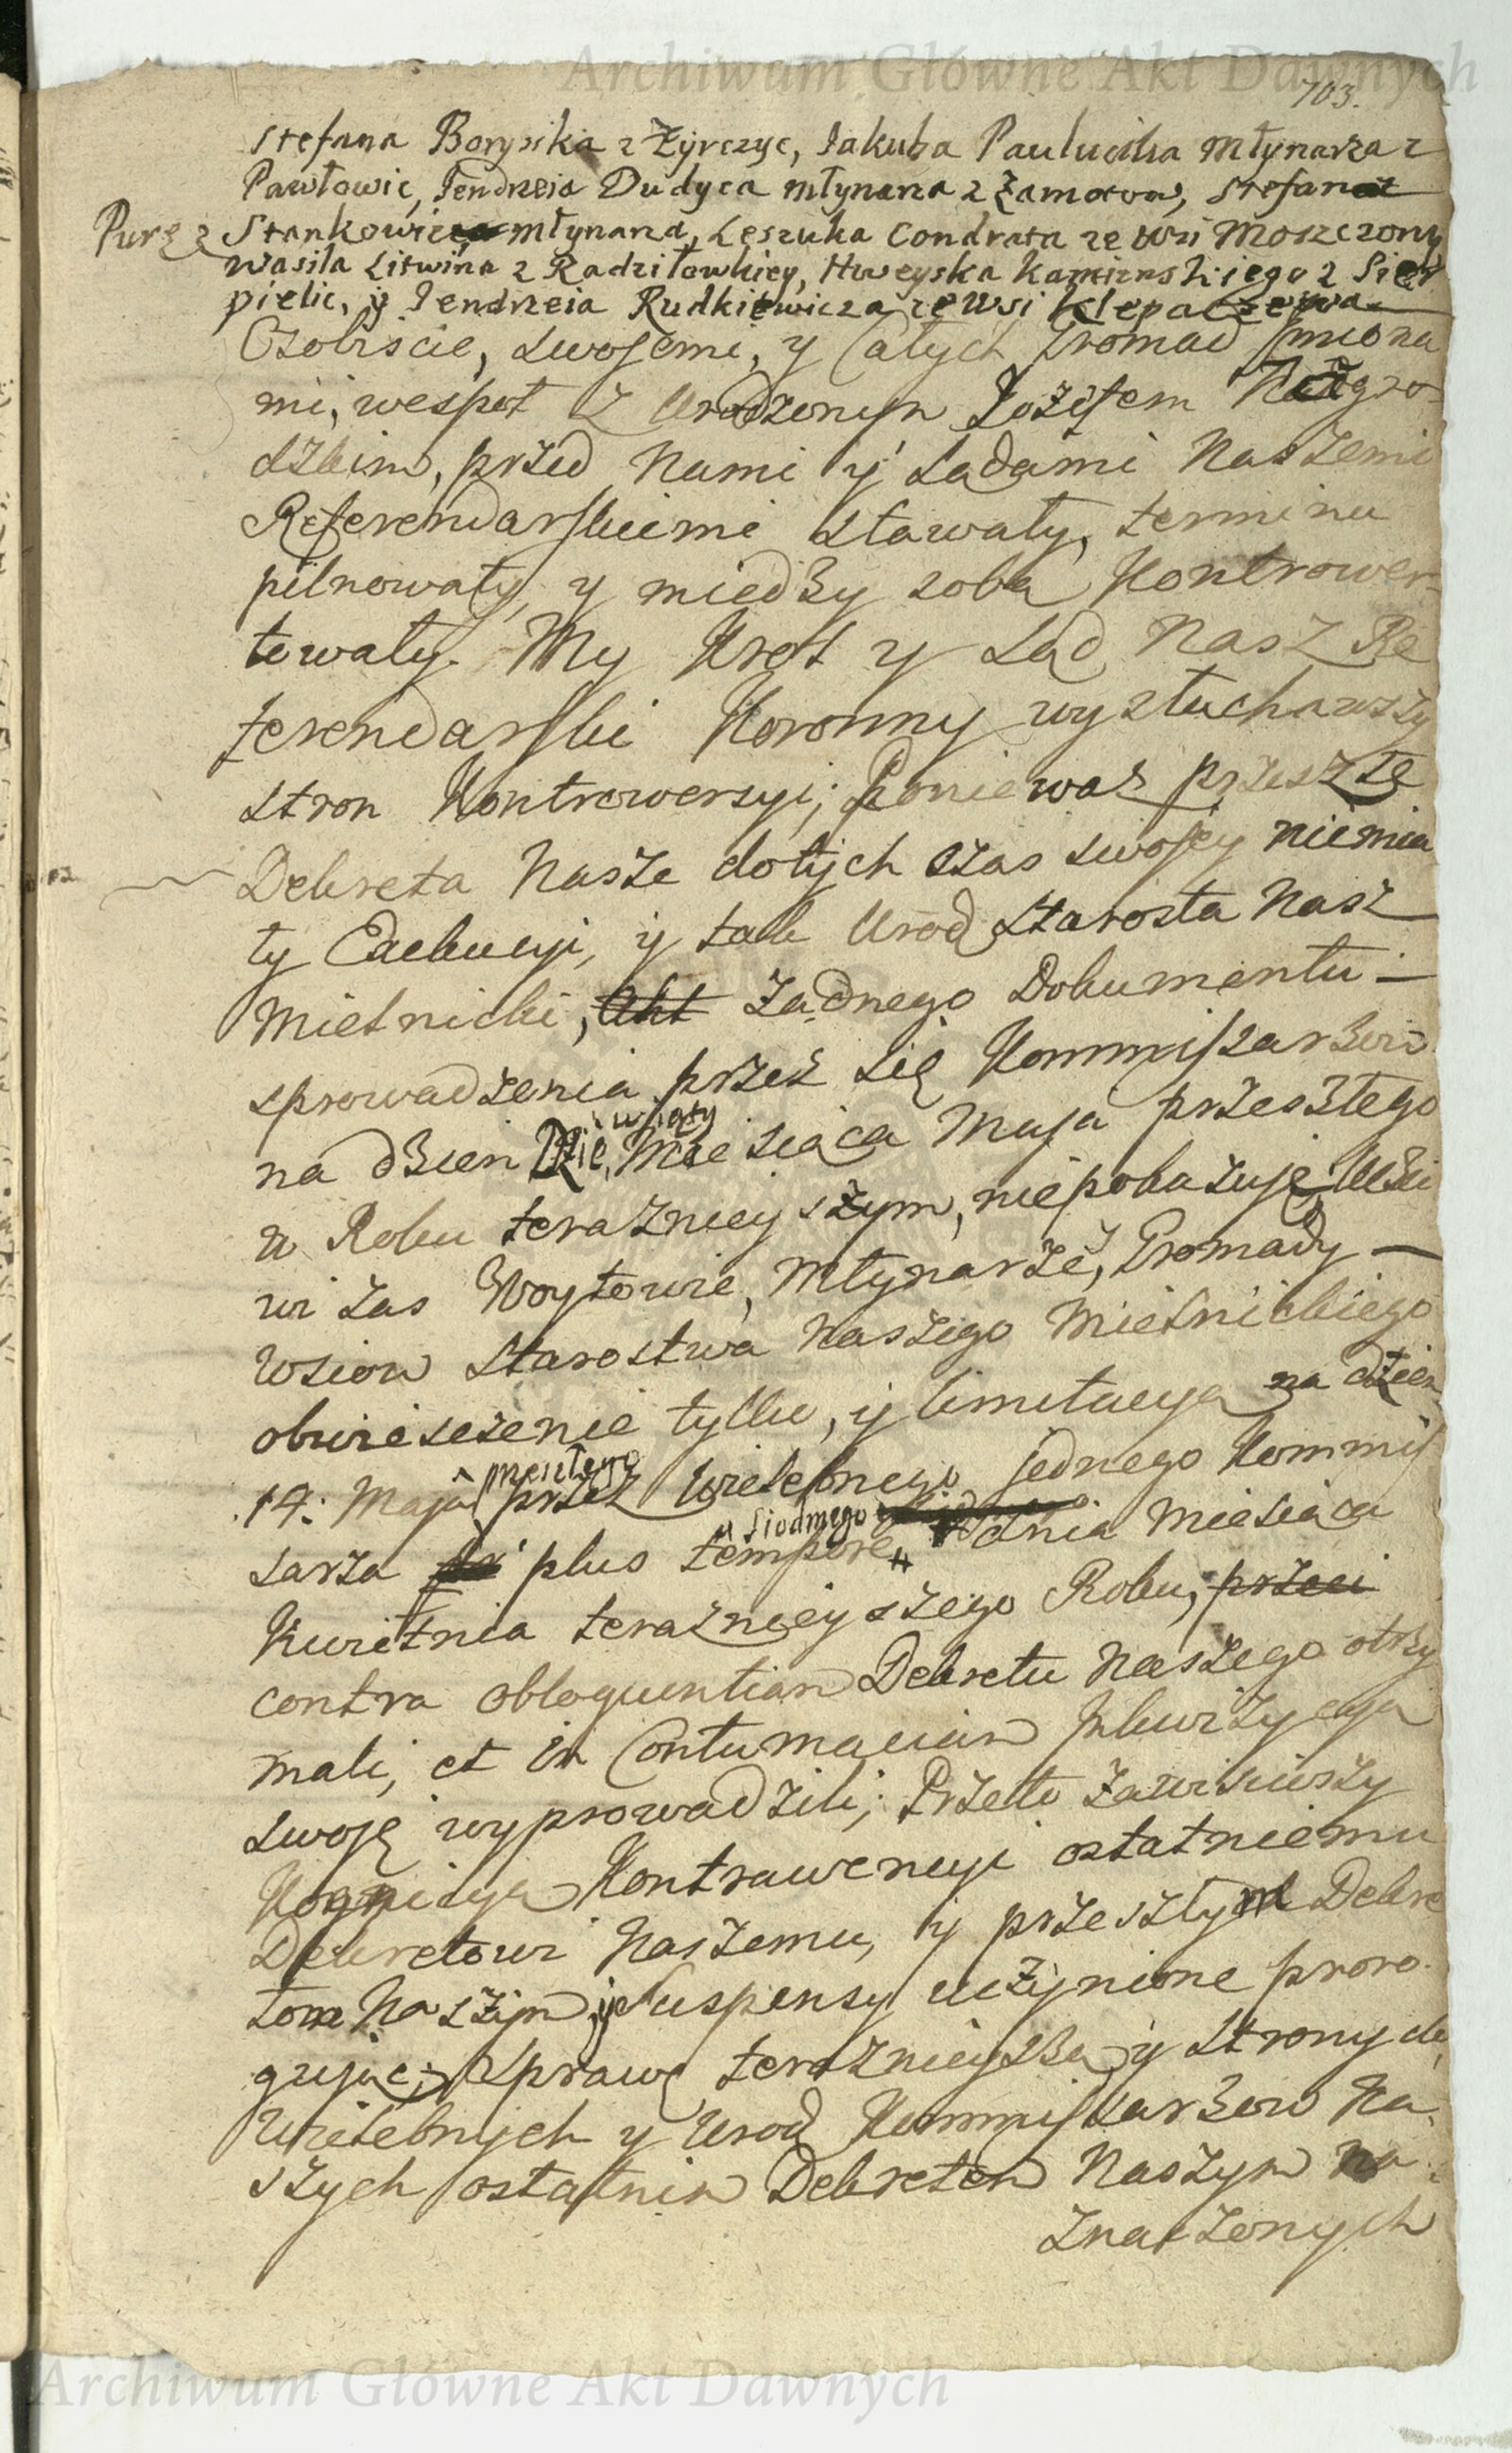 Archiwum Główne Akt Dawnych
703.
Stefana Borysika z Żyrczyc, Jakuba Paulucika Młynarza z
Pawłowic, Jendrzeia Dudyca młynarza z Zamorow, Stefana
Stankowicza młynarza, Leszuka Condrata ze wsi Moszczony
Purę z
Wasila Litwina z Radziłowkiey, Kamienskiego z Siel
pielic, y Jendrzeia Rudkiewicza ze wsi Klepaczewa
Osobiście, swojemi, y całych Gromad Jmiona
mi, wespoł z Urodzonym Jożefem
dzkim, przed Nami y Sądami Naszemi
Referendarskiemi stawały, terminu
pilnowały, y miedzy sobą Kontrower-
towały. My Krol y Sąd Nasz Re
ferendarski Koronny wysłuchawszy
stron Kontrowersyi; Ponieważ przeszłe
Dekreta Nasze dotych czas swojey niemia
ły Exekucyi, y tak Urod Starosta Nasz
Mielnicki, Akt żadnego Dokumentu —
sprowadzenia przez się Kommissarzow
na dzien Dziewiąty Miesiąca Maja przeszłego
w Roku teraznieyszym, niepokazuje,
wi zas Woytowie, Młynarze, y Gromady —
wsiow Starostwa Naszego Mielnickiego
obwieszczenie tylko, y limitacyą na dzien
14: Maja przeszłego przez Wielebnego jednego Kommis
sarza plus tempore, a siodmego dnia Miesiąca
Kwietnia teraznieyszego Roku, przeci
contra obloquentiam Dekretu Naszego otrzy
mali, et in Contumaciam Jnkwizycyą
swoję wyprowadzili; Przeto zawiesiwszy
Kognicyą Kontrawencyi ostatniemu
Dekretowi Naszemu, y przeszłym Dekre
tom Naszym, y Suspensy uczynione proro-
gując, Sprawę teraznieyszą y Strony do
Wielebnych y Urod Kommissarzow Na-
szych ostatnim Dekretem Naszym na-
znaczonych
Archiwum Główne Akt Dawnych